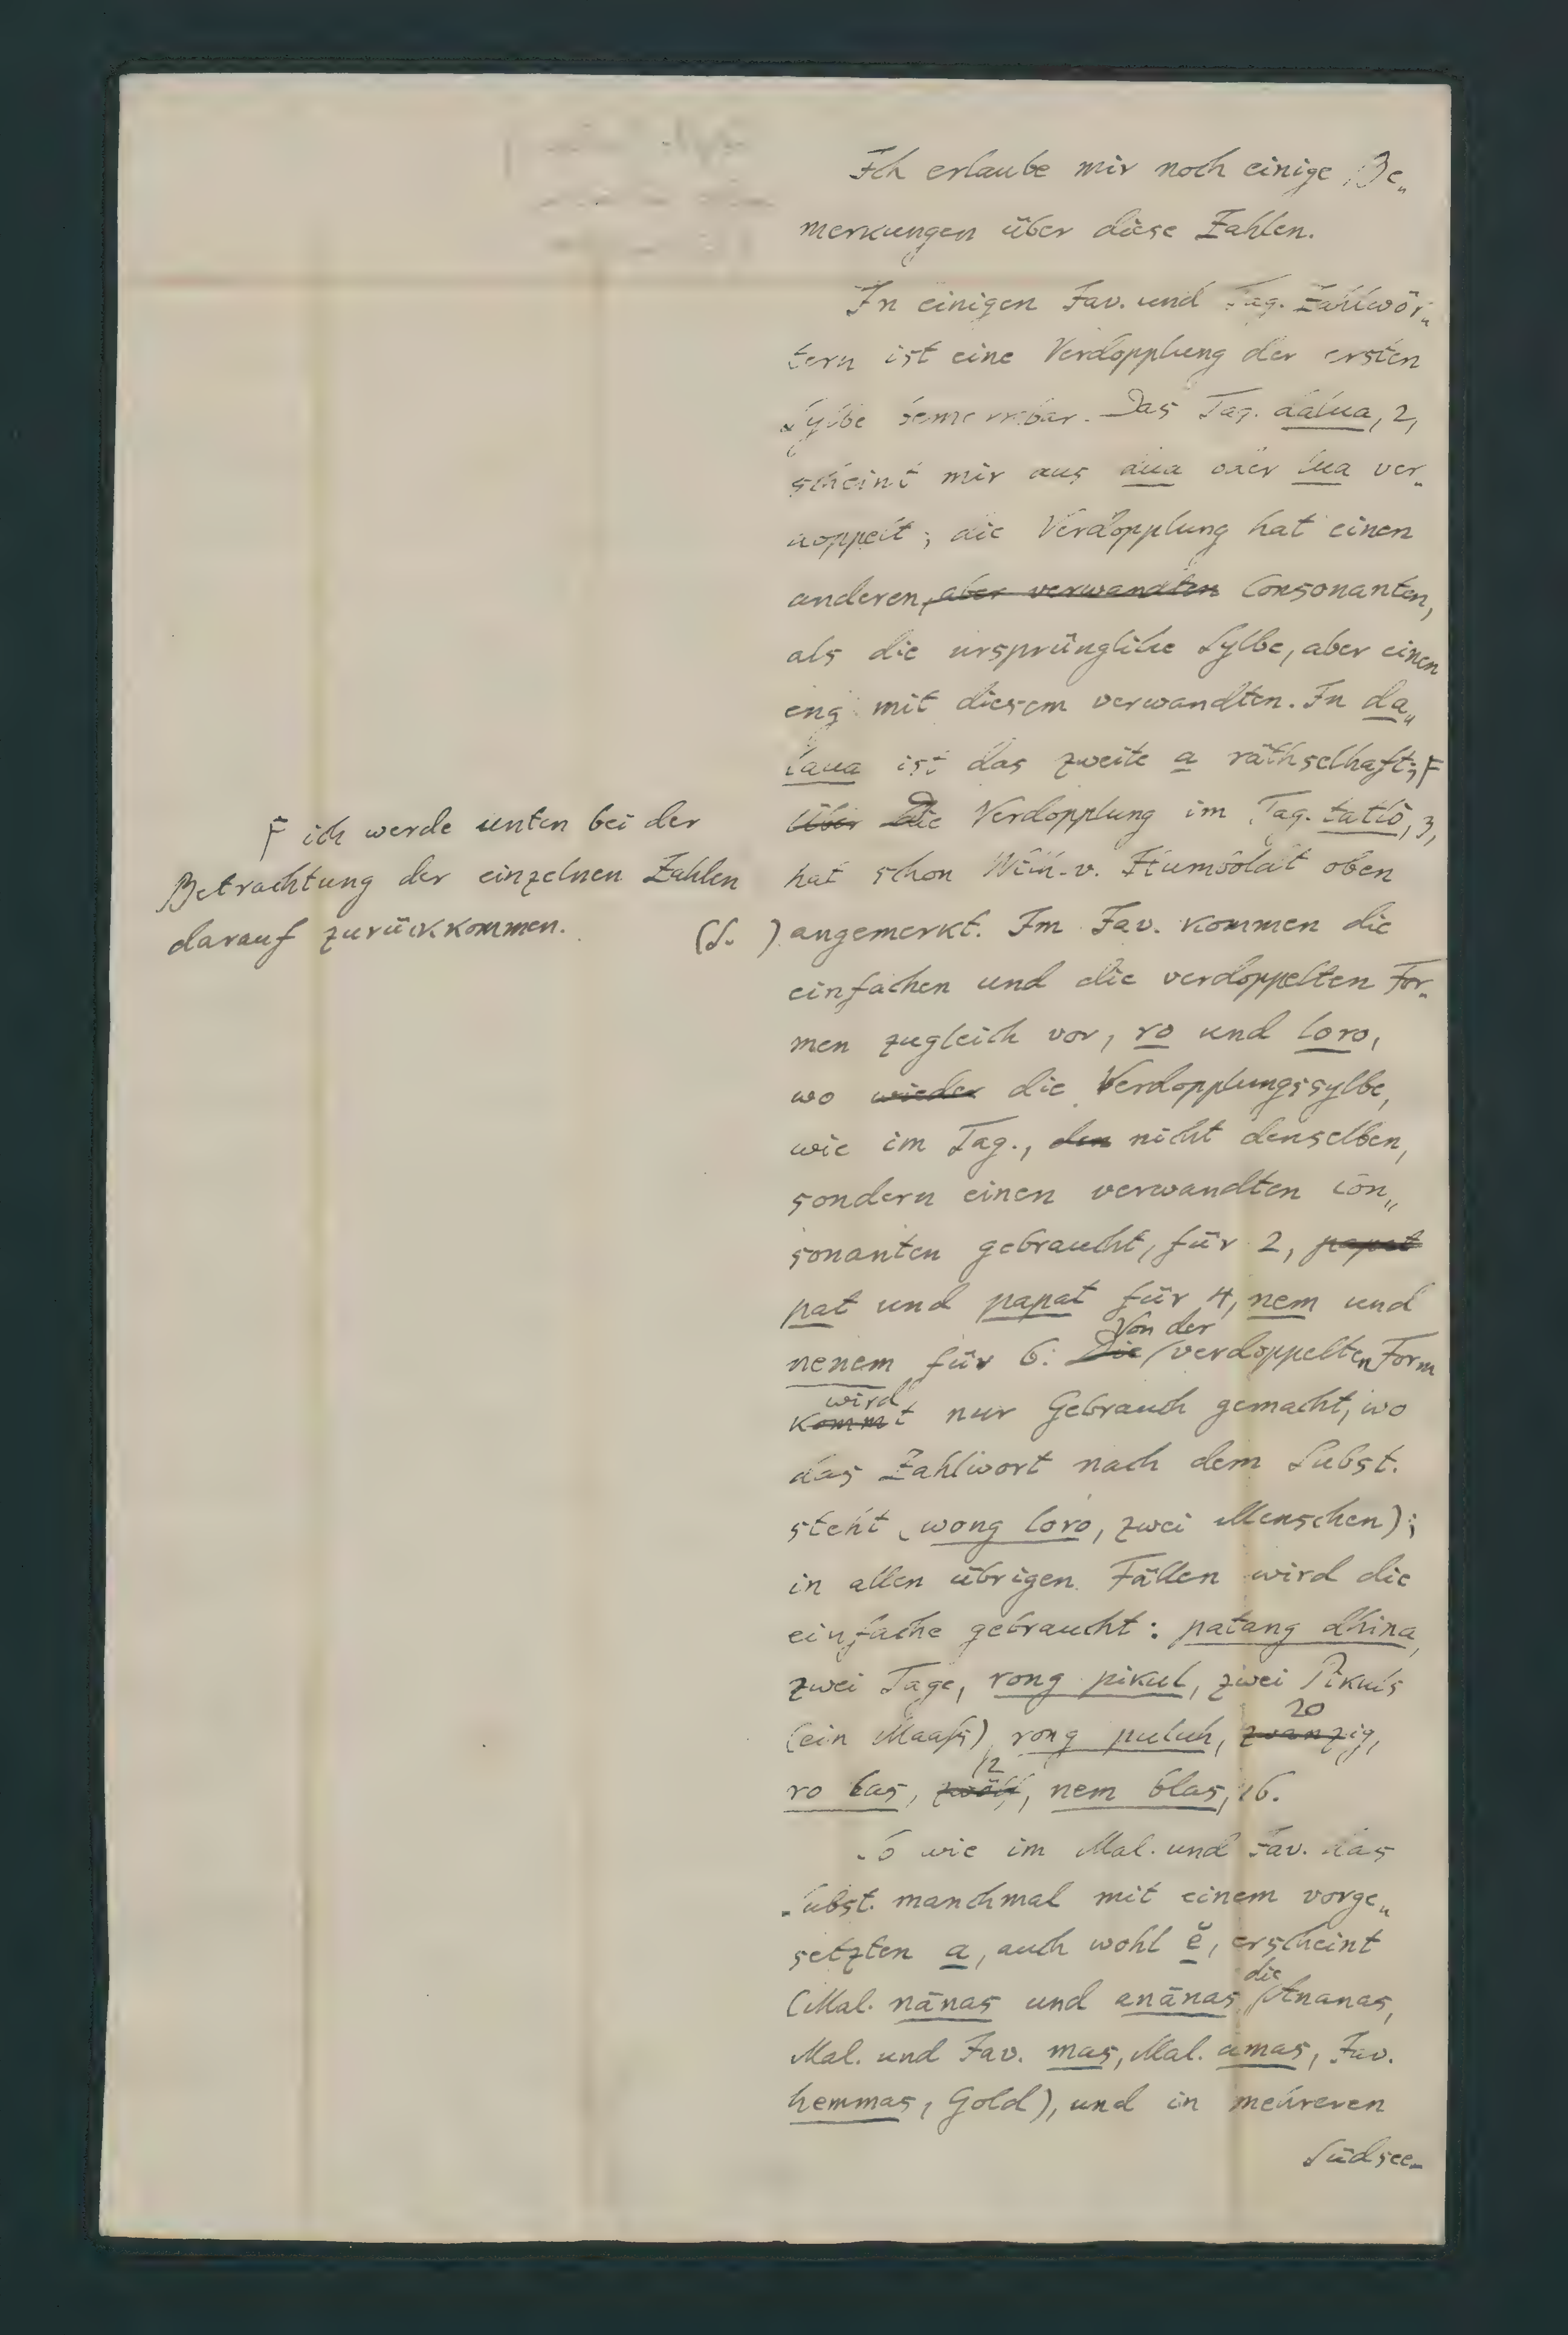 Ich erlaube mir noch einige Be„
merkungen über diese Zahlen.
In einigen Jav. und Tag. Zahlwör„
tern ist eine Verdopplung der ersten
Sylbe bemerkbar. Das Tag. dalua, 2,
scheint mir aus dua oder lua ver„
doppelt; die Verdopplung hat einen
anderen, aber verwandten Consonanten,
als die ursprüngliche Sylbe, aber einen
eng mit diesem verwandten. In da„
laua ist das zweite a räthselhaft; F
Über Die Verdopplung im Tag. tatlò, 3,
hat schon Wilh. v. Humboldt oben
(S. ) angemerkt. Im Jav. kommen die
einfachen und die verdoppelten For„
men zugleich vor, ro und loro,
wo wieder die Verdopplungssylbe,
wie im Tag., den nicht denselben,
sondern einen verwandten Con„
sonanten gebraucht, für 2, papat
pat und papat für 4, nem und
nenem für 6: Die Von der verdoppelten Form
kommt wird nur Gebrauch gemacht, wo
das Zahlwort nach dem Subst.
steht (wong loro, zwei Menschen);
in allen übrigen Fällen wird die
einfache gebraucht: patang dhina,
zwei Tage, rong pikul, zwei Pikuls
(ein Maaß) rong puluh, zwanzig, 20
ro las, zwölf, 12 nem blas, 16.
So wie im Mal. und Jav. das
Subst. manchmal mit einem vorge„
setzten a, auch wohl ĕ, erscheint
(Mal. nānas und anānas, die Ananas,
Mal. und Jav. mas, Mal. amas, Jav.
hemmas, Gold), und in mehreren
Südsee-
F ich werde unten bei der
Betrachtung der einzelnen Zahlen
darauf zurückkommen.